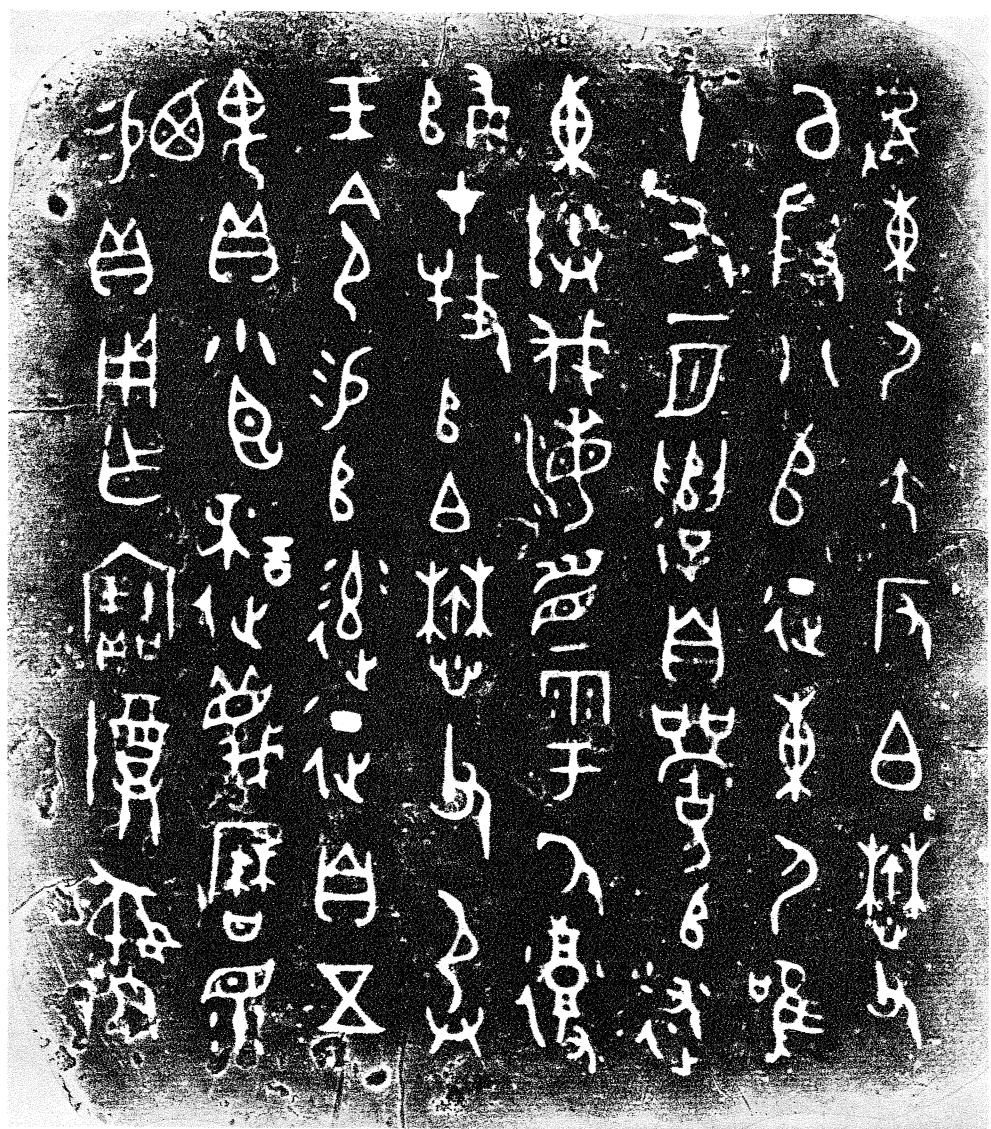 𠭯東尸大反白懋父
以殷八𠂤征東尸唯
十又一月遣自𩫨𠂤述
東陕伐海眉雩氒复
歸才牧𠂤白懋父承
王令易𠂤率征自五
齵貝小臣謎蔑曆眔
易貝用乍寶尊彝